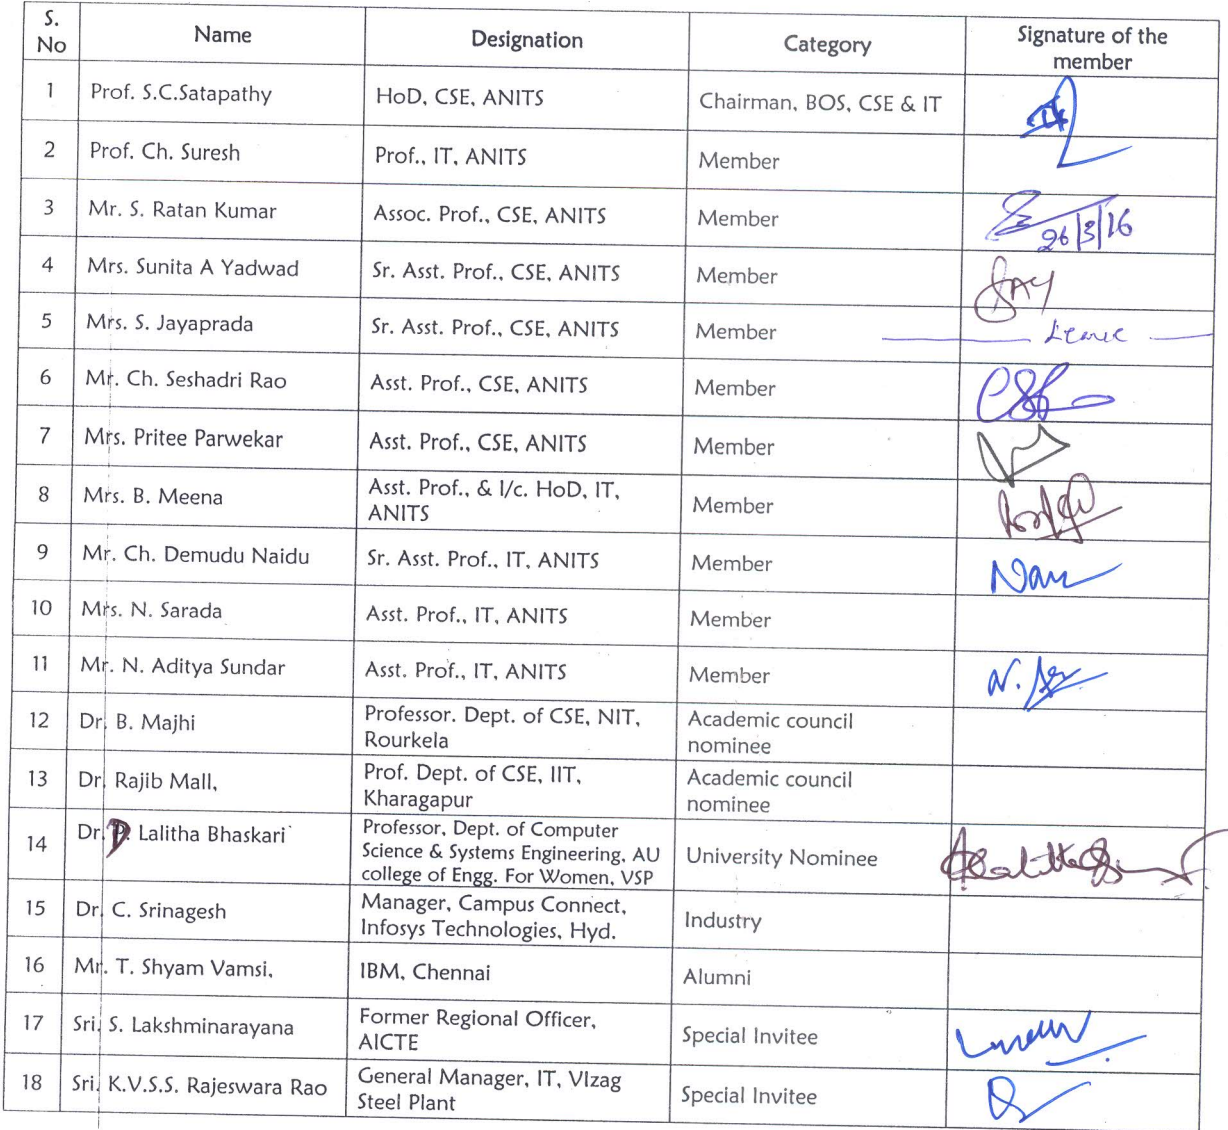 S. No Name Designation Category Signature of the member
1 Prof. S.C.Satapathy HoD, CSE, ANITS Chairman, BOS, CSE & IT
2 Prof. Ch. Suresh Prof., IT, ANITS Member
3 Mr. S. Ratan Kumar Assoc. Prof., CSE, ANITS Member 26/3/16
4 Mrs. Sunita A Yadwad Sr. Asst. Prof., CSE, ANITS Member SAY
5 Mrs. S. Jayaprada Sr. Asst. Prof., CSE, ANITS Member Leave
6 Mr. Ch. Seshadri Rao Asst. Prof., CSE, ANITS Member
7 Mrs. Pritee Parwekar Asst. Prof., CSE, ANITS Member
8 Mrs. B. Meena Asst. Prof., & I/c. HoD, IT, ANITS Member
9 Mr. Ch. Demudu Naidu Sr. Asst. Prof., IT, ANITS Member
10 Mrs. N. Sarada Asst. Prof., IT, ANITS Member
11 Mr. N. Aditya Sundar Asst. Prof., IT, ANITS Member
12 Dr. B. Majhi Professor. Dept. of CSE, NIT, Rourkela Academic council nominee
13 Dr. Rajib Mall, Prof. Dept. of CSE, IIT, Kharagapur Academic council nominee
14 Dr. D. Lalitha Bhaskari Professor, Dept. of Computer Science & Systems Engineering, AU college of Engg. For Women, VSP University Nominee
15 Dr. C. Srinagesh Manager, Campus Connect, Infosys Technologies, Hyd. Industry
16 Mr. T. Shyam Vamsi, IBM, Chennai Alumni
17 Sri. S. Lakshminarayana Former Regional Officer, AICTE Special Invitee
18 Sri. K.V.S.S. Rajeswara Rao General Manager, IT, VIzag Steel Plant Special Invitee